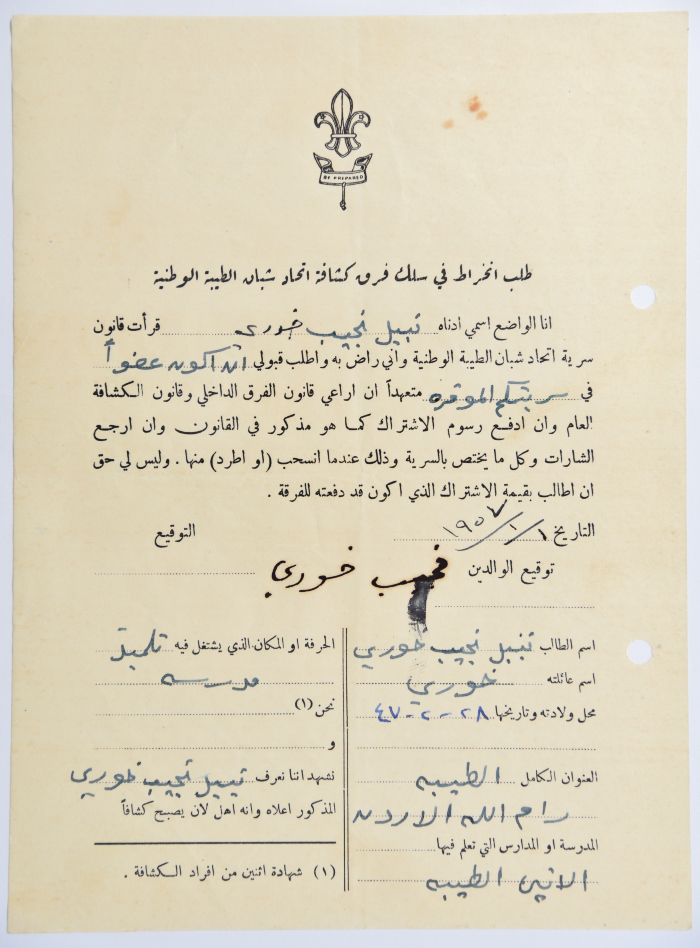 BE PREPARED
طلب انخراط في سلك فرق كشافة اتحاد شبان الطيبة الوطنية
انا الواضع اسمي ادناه نبيل نجيب خوري قرأت قانون
سرية اتحاد شبان الطيبة الوطنية واني راض به واطلب قبولي ان اكون عضواً
في سريتكم الموقره متعهداً ان اراعي قانون الفرق الداخلي وقانون الكشافة
العام وان ادفع رسوم الاشتراك كما هو مذكور في القانون وان ارجع
الشارات وكل ما يختص بالسرية وذلك عندما انسحب (او اطرد) منها . وليس لي حق
ان اطالب بقيمة الاشتراك الذي اكون قد دفعته للفرقة .
التاريخ ١/١/١٩٥٧ التوقيع
توقيع الوالدين نجيب خوري
اسم الطالب نبيل نجيب خوري
اسم عائلته خوري
محل ولادته وتاريخها ٢٨-٢-٤٧
العنوان الكامل الطيبه
رام الله الاردن
المدرسة او المدارس التي تعلم فيها
الاتين الطيبه
الحرفة او المكان الذي يشتغل فيه تلميذ
مدرسه
نحن (١)
و
نشهد اننا نعرف نبيل نجيب خوري
المذكور اعلاه وانه اهل لان يصبح كشافاً
(١) شهادة اثنين من افراد الكشافة .